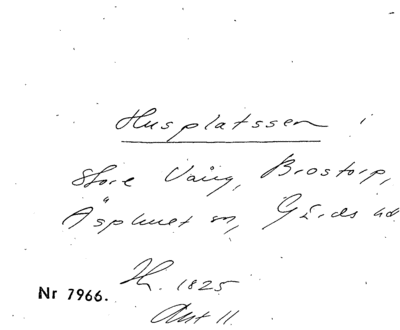 Husplatssen i
Store Vång, Brostorp,
Äsphult sn, Gärds hd
Nr 7966. Th. 1825
Akt 11.